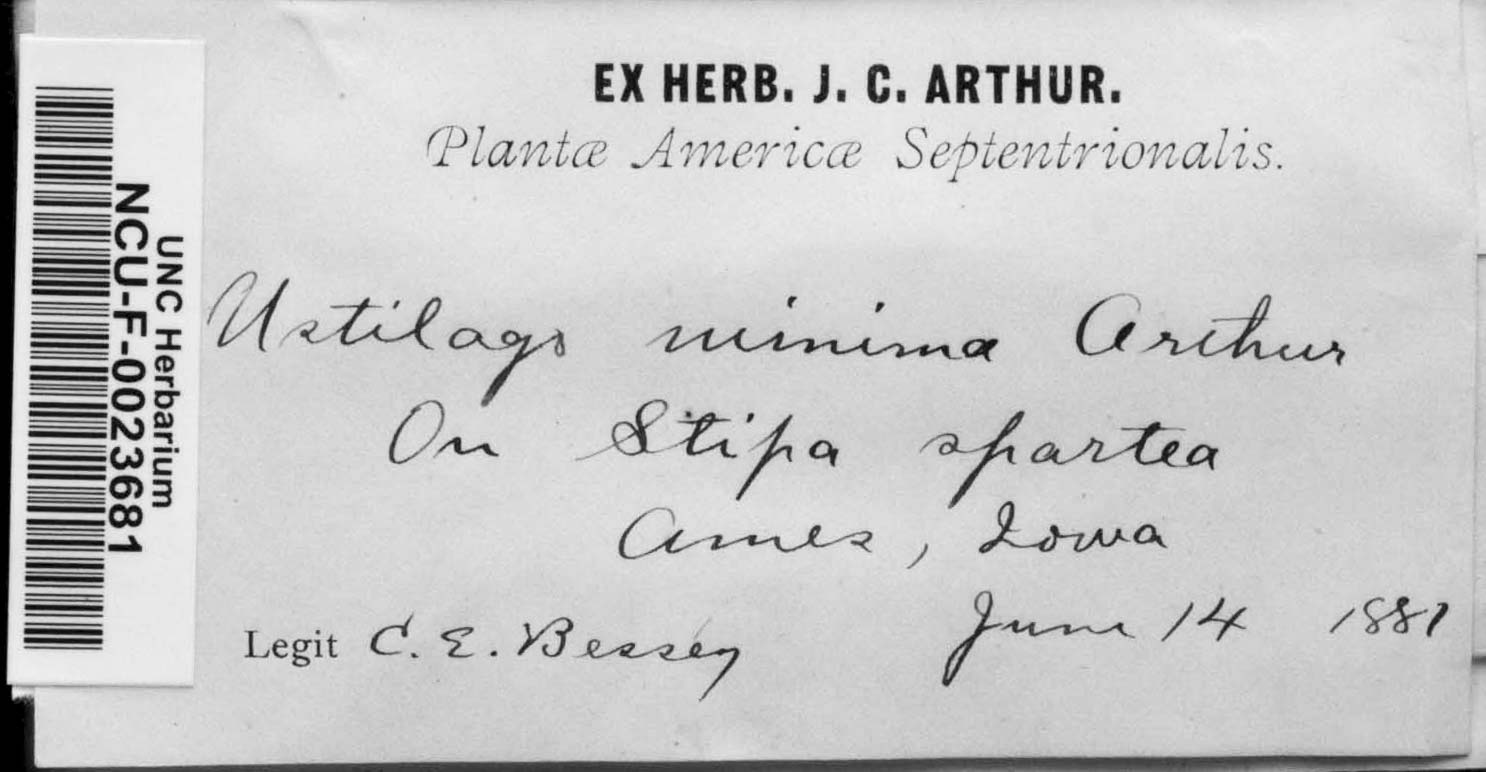 EX HERB. J. C. ARTHUR.
Plantæ Americæ Septentrionalis.
Ustilago minima Arthur
On Stipa spartea
Ames, Iowa
June 14 1881
Legit C. E. Bessey
UNC Herbarium
NCU-F-0023681